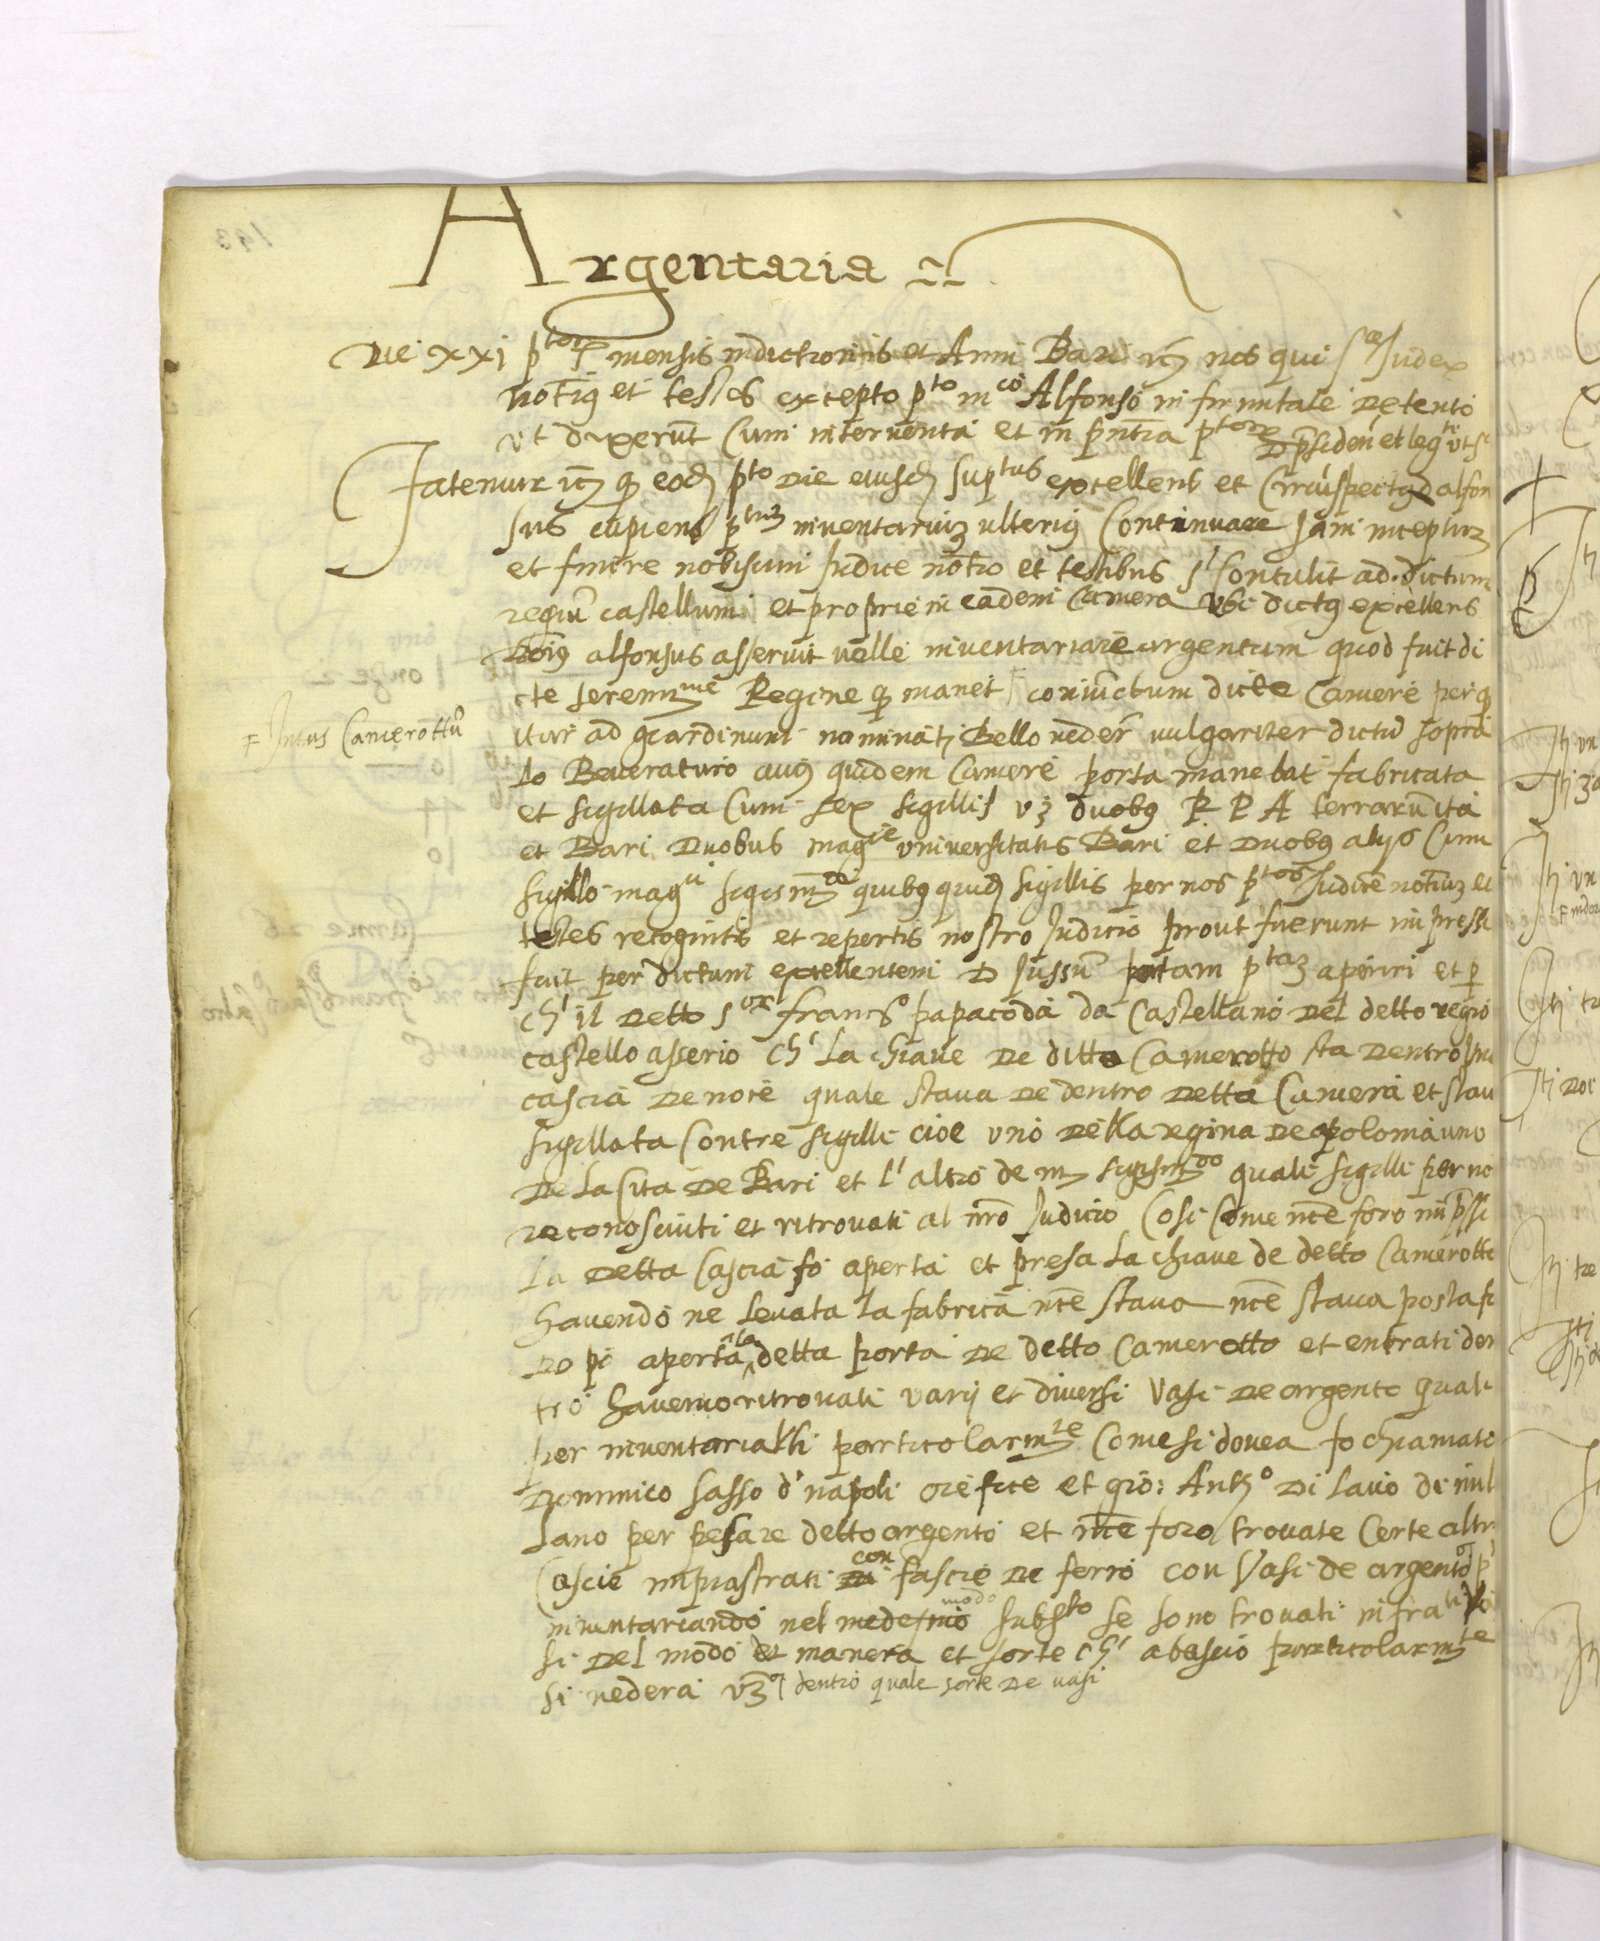 Argentaria
Die xxj p^tor mensis indictionis et Anni Bari nos qui s^a Judex
notarius et testes excepto p^to m^co Alfonso infirmitate Detento
ut dixerunt Cum interventu et in pntia p^torum
Fatemur q eod p^to Die eiusd sup^tus excellens et Circuspectus d alfon
sus cupiens p^tum inventarium ulterius Continuare Jam inceptum
et finire nobiscum Judice notro et testibus Contulit ad dictum
regiu castellum et proprie in eadem Camera Ubi dictus excellens
Dnus alfonsus asseruit velle inventariare argentum quod fuit di
cte seren^me Regine q manet coniuctum dicte Camere per q
F Intus Camerottu
itur ad giardinum nominati Bello veder vulgariter dictu sopra
Lo Beveraturo cuius quidem Camere porta manebat fabricata
et sigillata Cum sex sigillis vz duobus R P A
et Bari Duobus mag^ce universitatis Bari et Duobus alijs Cum
sigillo mag^ci sigism^di quibus quid sigillis per nos p^tos Judice notriu et
testes recognitis et repertis nostro Judicio prout fuerunt impressi
fuit per dictum excellentem D Jussu portam p^tam aperiri et p
ch' il Detto s^or francs^o papacoda da Castellano Del detto regio
castello asserio ch' La chiave De ditto Camerotto sta Dentro
cascia De noce quale stava De dentro Detta Camera et stav
sigillata Con tre sigilli cioe uno Della regina De polonia uno
De La cita De Bari et l' altro de m sigism^do quali sigilli per no
reconosciuti et ritrovati al nro Judicio Cosi Come nce foro imprssi
La Detta Cascia fo aperta et presa La chiave de detto Camerotto
havendo ne Levata La fabrica nce stava nce stava posta
Do pi aperta la detta porta De detto Camerotto et entrati den
tro havemo ritrovati varij et diversi Vasi De argento quali
per inventariarli particolarm^te Come si dovea fo chiamato
Dominico sasso d' napoli orefice et gio: Ant^o Di Lavio di mil
Lano per pesare detto argento et nce foro trovate Certe altr
Cascie inpiastrati con fascie De ferro con Vasi de argento p'
inventariando nel medesmo modo subs^to se sono trovati infra^ti Va
si Del modo et manera et sorte ch' abascio particolarm^te
si vedera vz dentro quale sorte De vasi